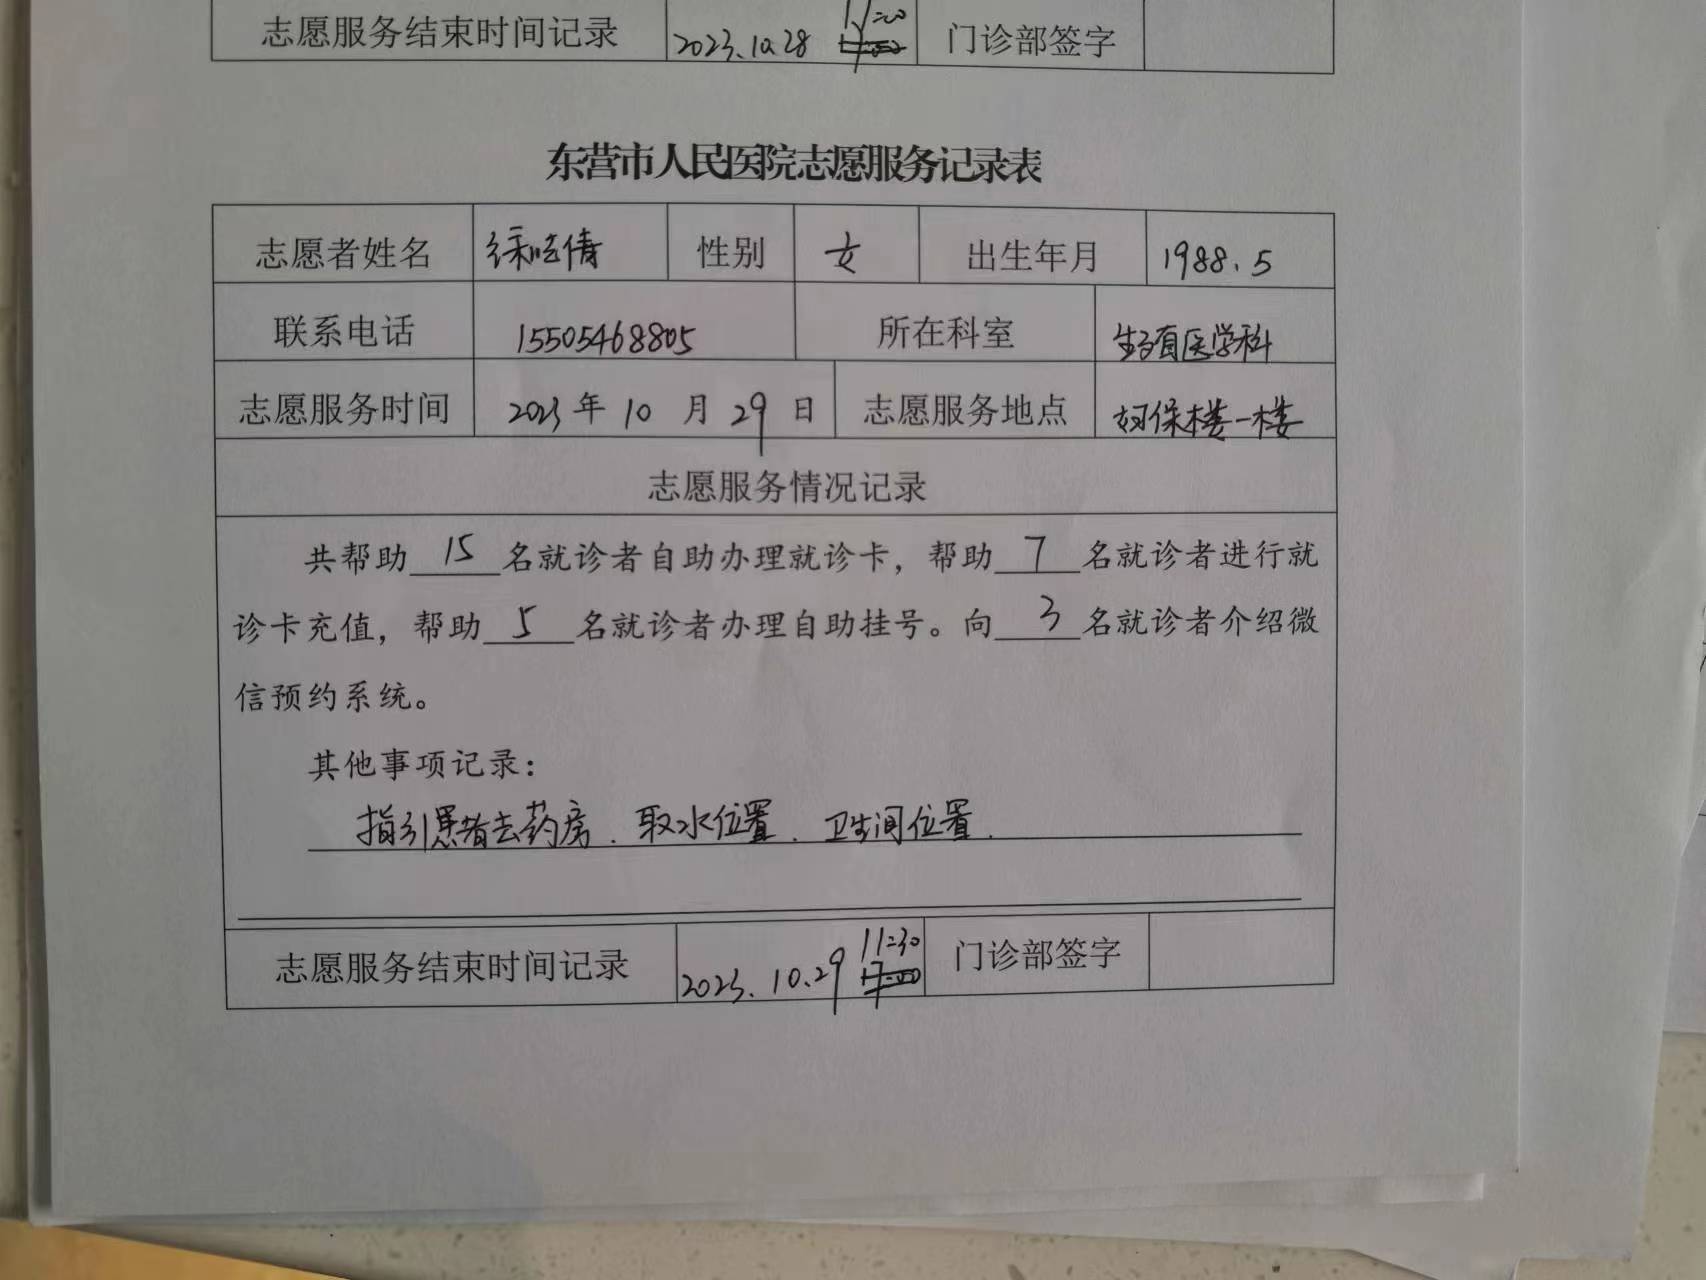 志愿服务结束时间记录 2023.10.28 门诊部签字
东营市人民医院志愿服务记录表
志愿者姓名 徐晓倩 性别 女 出生年月 1988.5
联系电话 15505468805 所在科室 生殖医学科
志愿服务时间 2023年10月29日 志愿服务地点 妇保楼一楼
志愿服务情况记录
共帮助 15 名就诊者自助办理就诊卡，帮助 7 名就诊者进行就
诊卡充值，帮助 5 名就诊者办理自助挂号。向 3 名就诊者介绍微
信预约系统。
其他事项记录：
指引患者去药房、取水位置、卫生间位置.
志愿服务结束时间记录 2023.10.29 11:30 门诊部签字